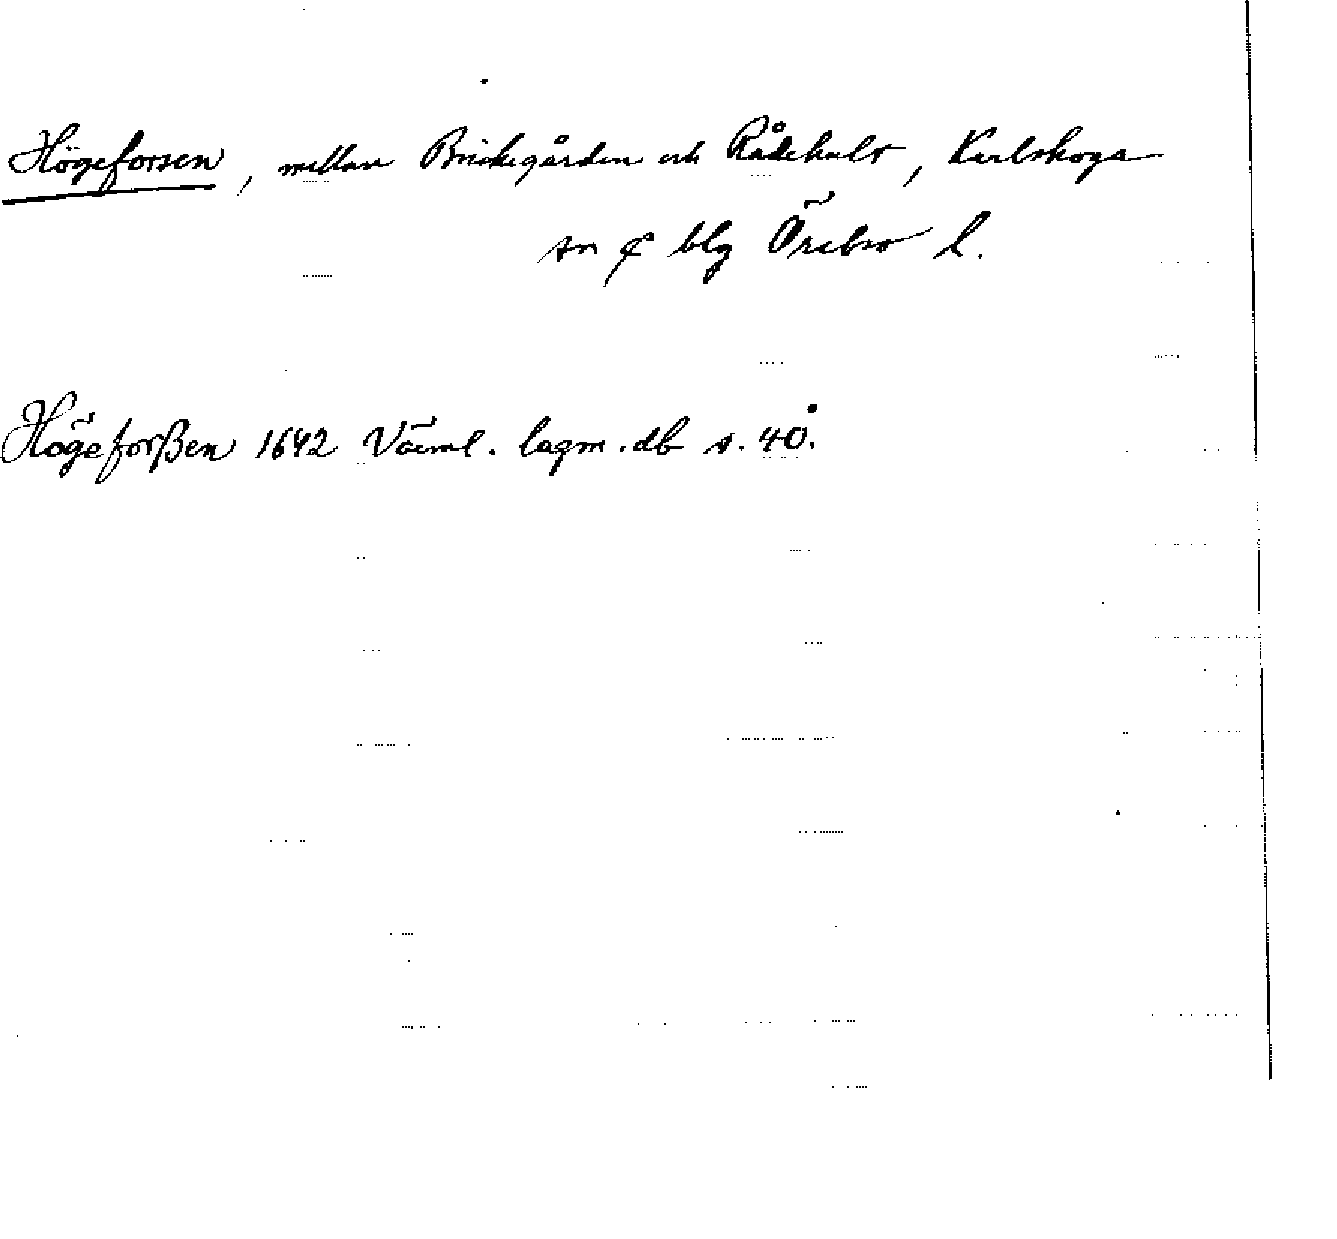 Högeforsen, mellan Brickegården och Rådehult, Karlskoga
sn & blg Örebro l.
Högeforßen 1642 Värml. lagm. db s. 40.